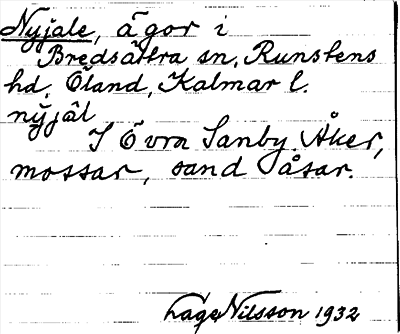 Nyjale, ägor i
Bredsättra sn, Runstens
hd, Öland, Kalmar l.
ny̆jål
I Övra Sanby. Åker,
mossar, sand åsar.
Lage Nilsson 1932